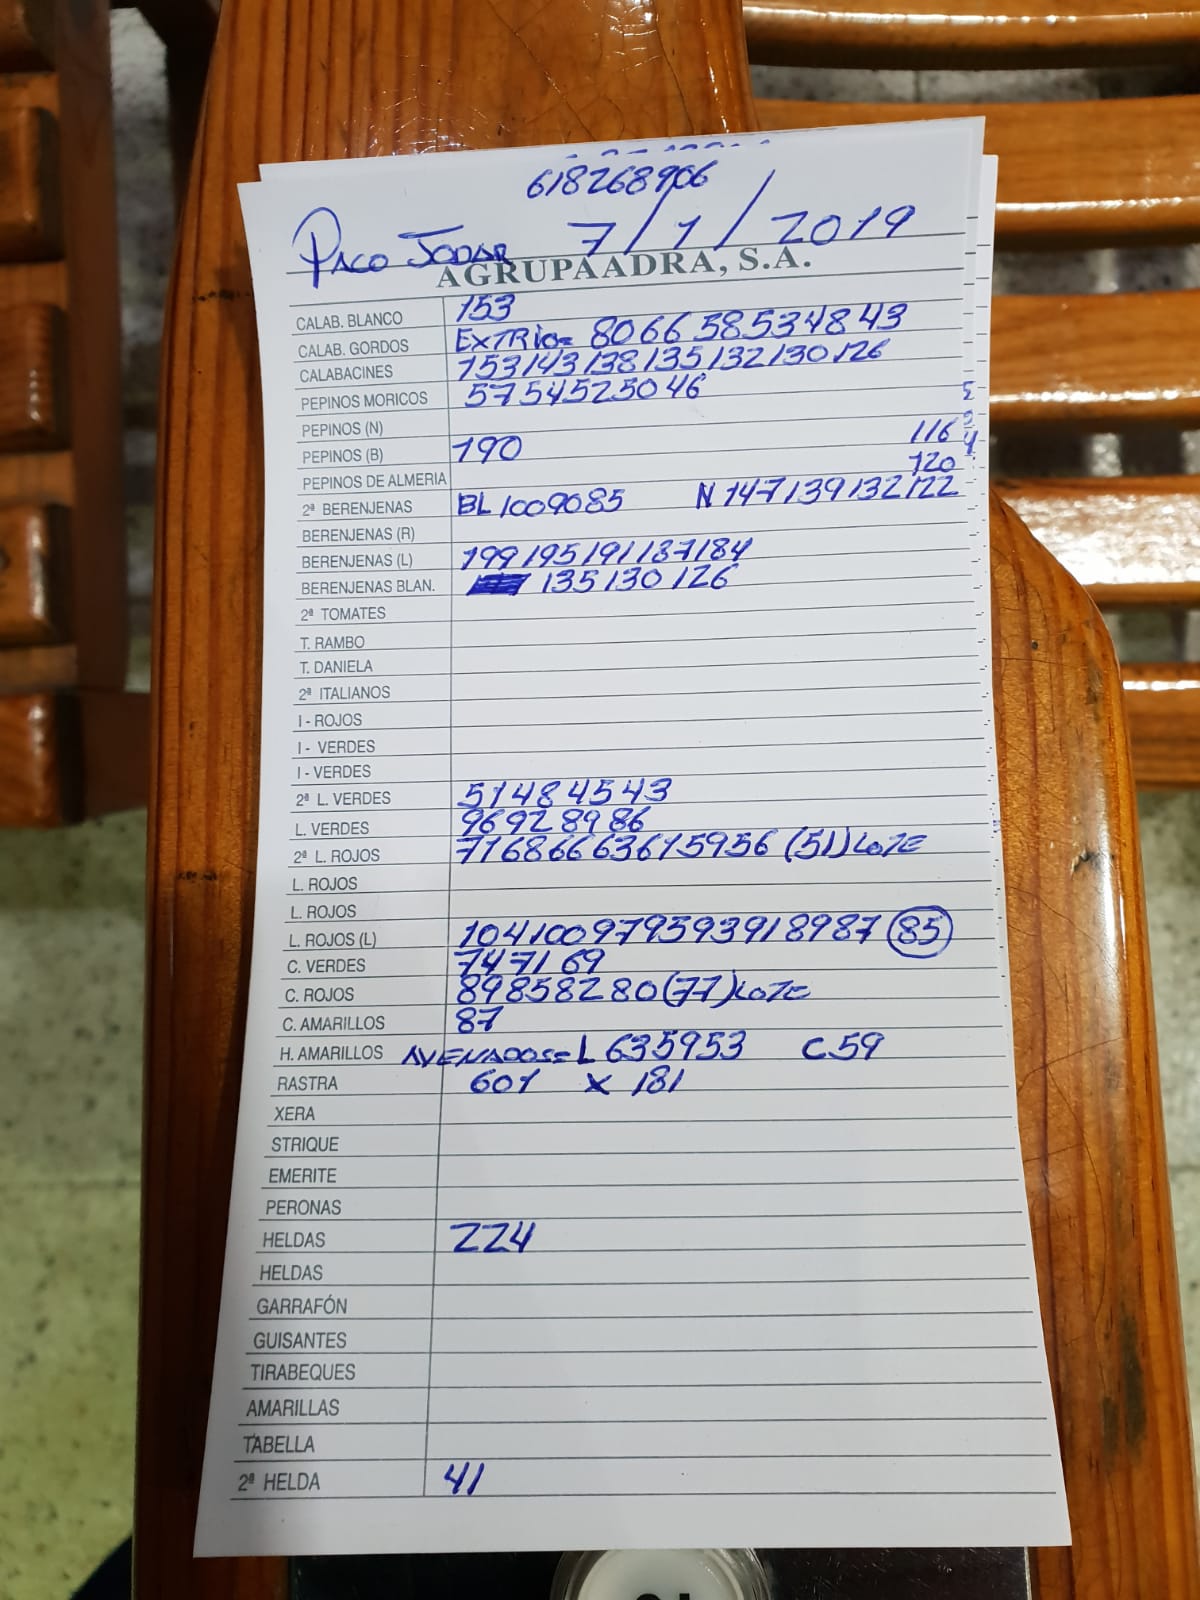 618268906
PACO JODAR 7/1/2019
AGRUPAADRA, S.A.
CALAB. BLANCO 153
CALAB. GORDOS EXTRIO= 80 66 58 53 48 43
CALABACINES 153 143 138 135 132 130 126
PEPINOS MORICOS 57 54 52 50 46
PEPINOS (N) 116
PEPINOS (B) 190
PEPINOS DE ALMERIA 120
2ª BERENJENAS BL 100 90 85 N 147 139 132 122
BERENJENAS (R)
BERENJENAS (L) 199 195 191 187 184
BERENJENAS BLAN. 135 130 126
2ª TOMATES
T. RAMBO
T. DANIELA
2ª ITALIANOS
I - ROJOS
I - VERDES
I - VERDES
2ª L. VERDES 51 48 45 43
L. VERDES 96 92 89 86
2ª L. ROJOS 71 68 66 63 61 59 56 (51) LOTE
L. ROJOS
L. ROJOS
L. ROJOS (L) 104 100 97 95 93 91 89 87 85
C. VERDES 74 71 69
C. ROJOS 89 85 82 80 (77) LOTE
C. AMARILLOS 87
H. AMARILLOS AVENADOS= L 63 59 53 C 59
RASTRA 601 X 181
XERA
STRIQUE
EMERITE
PERONAS
HELDAS 224
HELDAS
GARRAFÓN
GUISANTES
TIRABEQUES
AMARILLAS
TABELLA
2ª HELDA 41